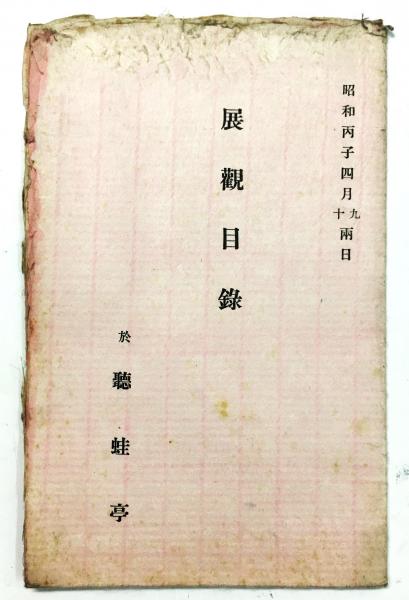 昭和丙子四月九十兩日
展觀目錄
於聽蛙亭